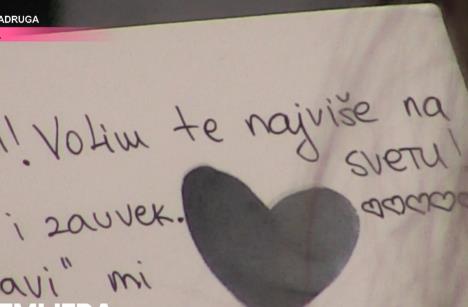 ADRUGA
! Volim te najviše na
svetu!
i zauvek.
avi" mi